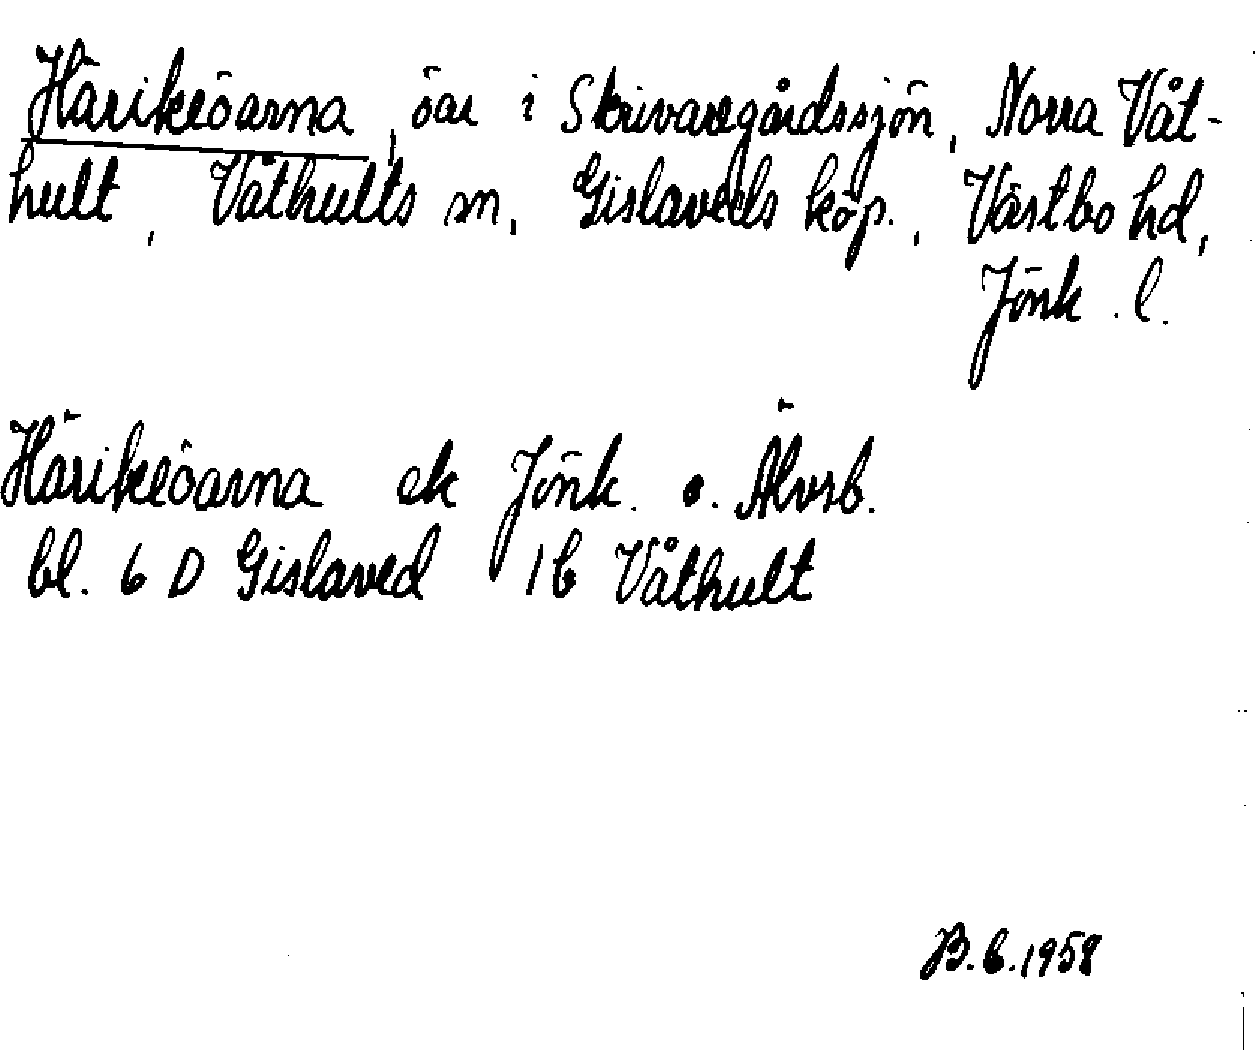 Härikeöarna, öar i Skrivaregårdssjön, Norra Våt-
hult, Våthults sn, Gislaveds köp., Västbo hd,
Jönk. l.
Härikeöarna ek Jönk. o. Älvsb.
bl. 6 D Gislaved 1b Våthult
B.E.1958